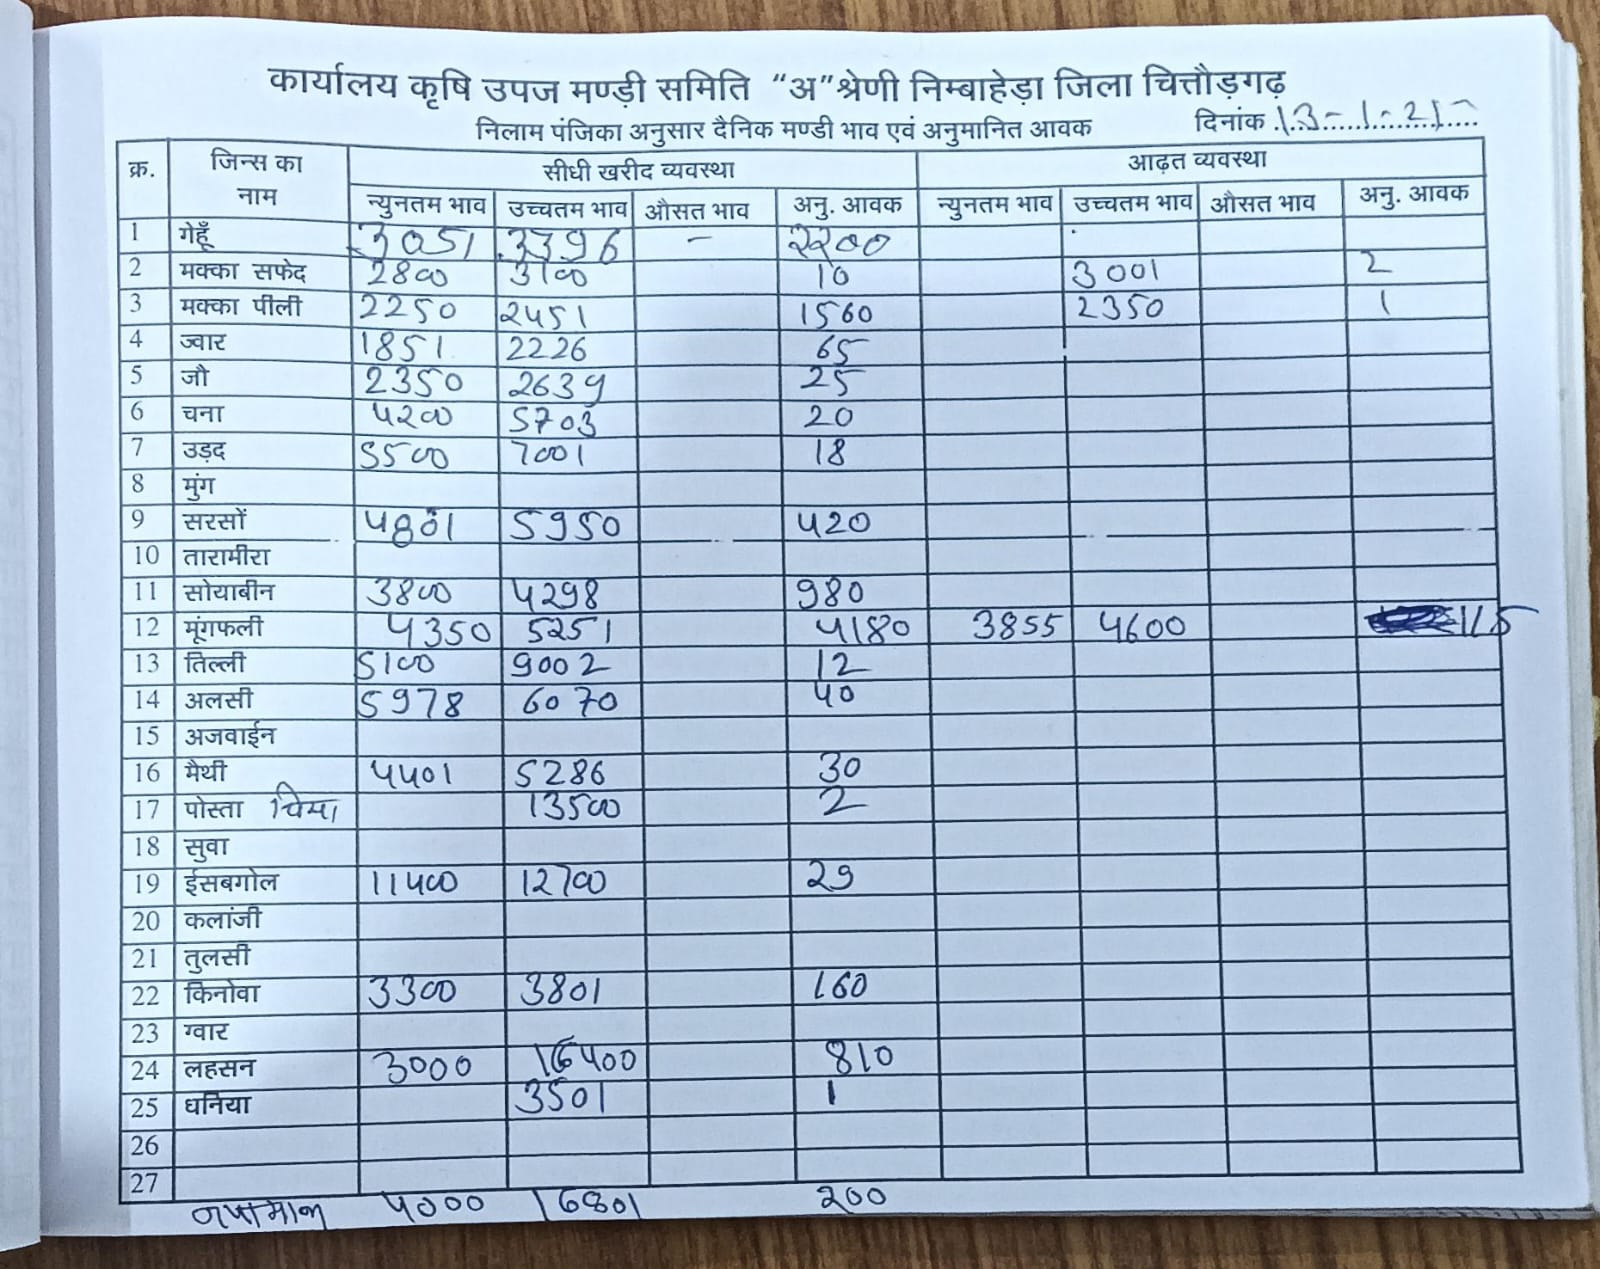 कार्यालय कृषि उपज मण्डी समिति "अ"श्रेणी निम्बाहेड़ा जिला चित्तौड़गढ़
निलाम पंजिका अनुसार दैनिक मण्डी भाव एवं अनुमानित आवक दिनांक 13-1-21
क्र. जिन्स का नाम सीधी खरीद व्यवस्था आढ़त व्यवस्था
न्युनतम भाव उच्चतम भाव औसत भाव अनु. आवक न्युनतम भाव उच्चतम भाव औसत भाव अनु. आवक
1 गेहूँ 3051 3396 - 2200
2 मक्का सफेद 2800 3100 10 3001 2
3 मक्का पीली 2250 2451 1560 2350 1
4 ज्वार 1851 2226 65
5 जौ 2350 2639 25
6 चना 4200 5703 20
7 उड़द 5500 7001 18
8 मुंग
9 सरसों 4801 5950 420
10 तारामीरा
11 सोयाबीन 3800 4298 980
12 मूंगफली 4350 5251 4180 3855 4600 115
13 तिल्ली 5100 9002 12
14 अलसी 5978 6070 40
15 अजवाईन
16 मैथी 4401 5286 30
17 पोस्ता 13500 2
18 सुवा
19 ईसबगोल 11400 12700 29
20 कलांजी
21 तुलसी
22 किनोवा 3300 3801 160
23 ग्वार
24 लहसन 3000 16400 810
25 धनिया 3501 1
26
27
4000 16801 200